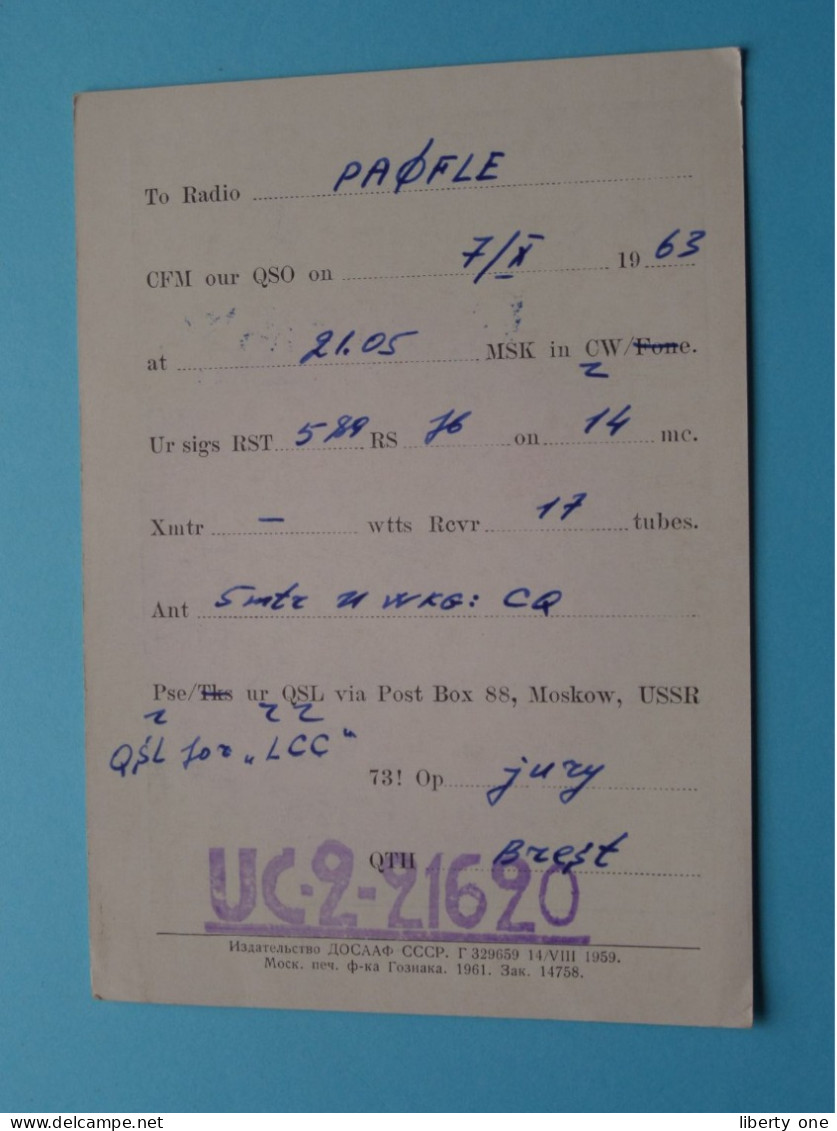 To Radio PAØFLE
CFM our QSO on 7/X 1963
at 21.05 MSK in CW/Fone.
Ur sigs RST 589 RS on 14 mc.
Xmtr — wtts Rcvr 17 tubes.
Ant 5mtr wkg: CQ
Pse/Tks ur QSL via Post Box 88, Moskow, USSR
QSL for „LCC"
73! Op jury
QTH Brest
UC-2-21620
Издательство ДОСААФ СССР. Г 329659 14/VIII 1959.
Моск. печ. ф-ка Гознака. 1961. Зак. 14758.
liberty one